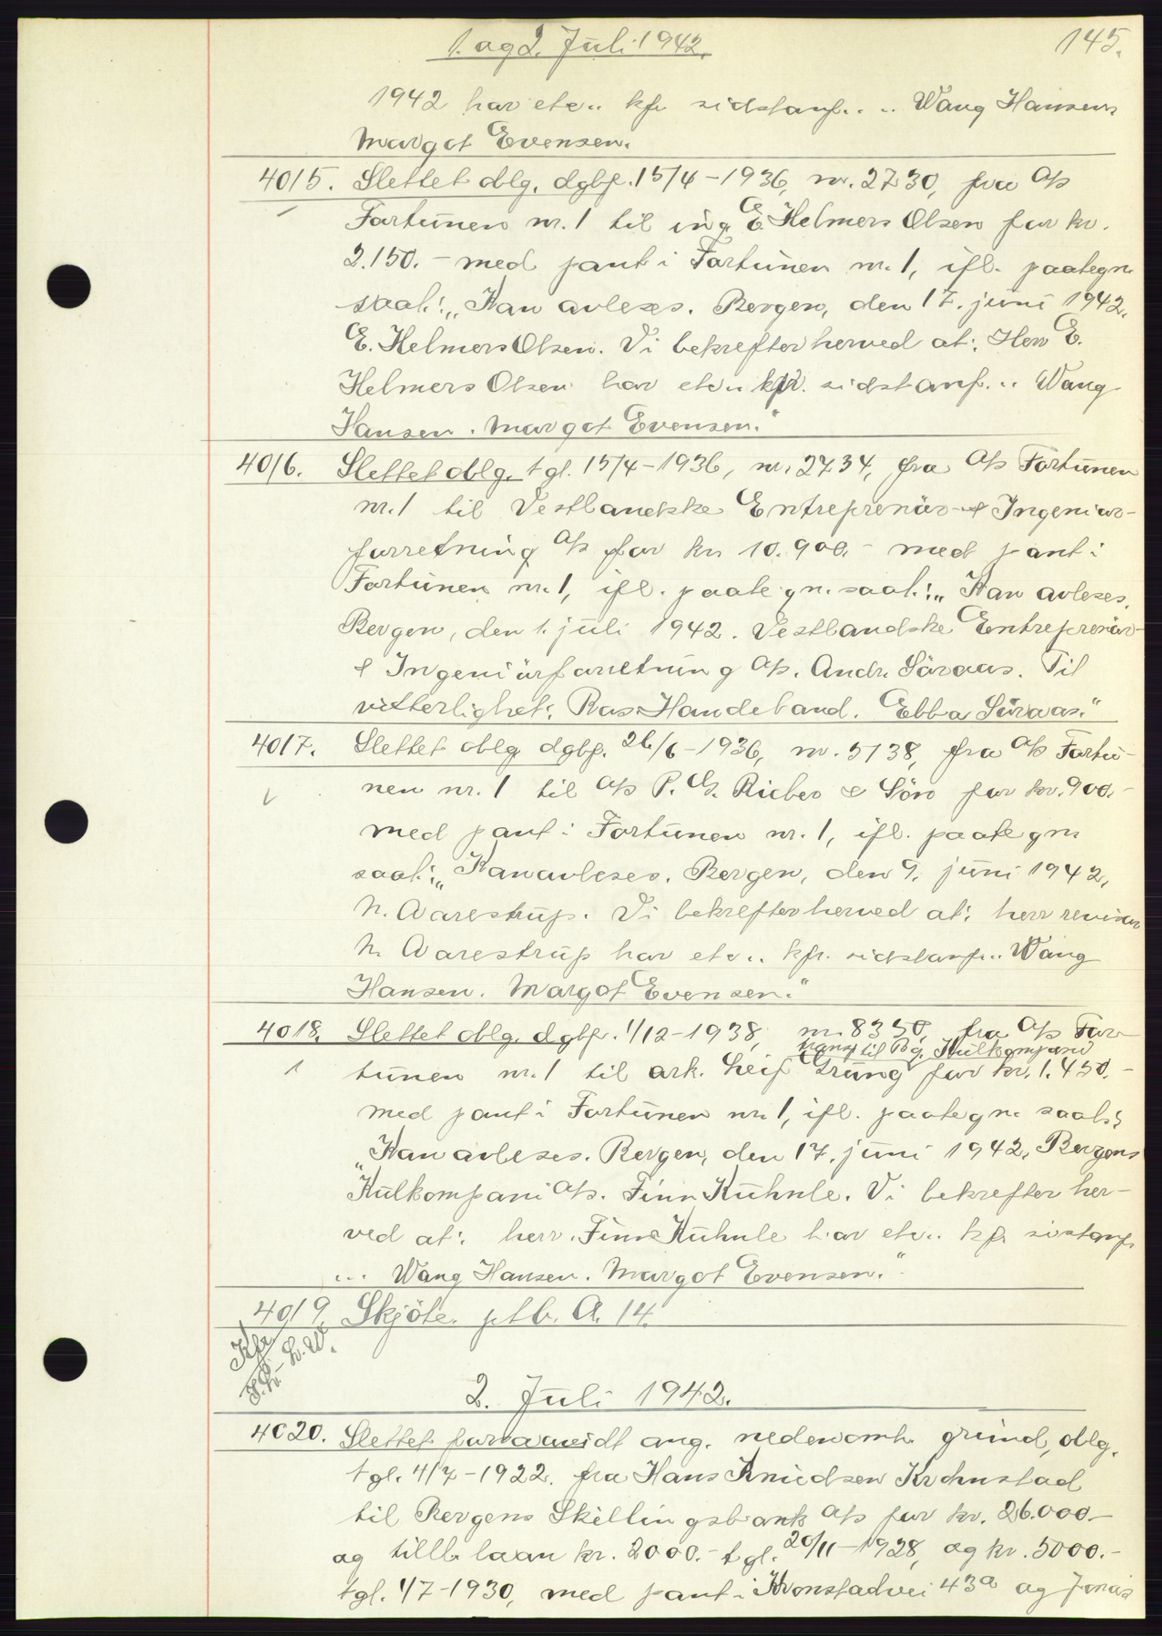 1. og 2. Juli 1942.
145.
1942 har etc.. kfr sidstanf.. .. Wang Hansen.
Margot Evensen.
4015. Slettet oblg. dgbf. 15/4-1936, nr. 2730, fra A/s
Fortunen nr. 1 til ing E. Helmers Olsen for kr.
2.150.- med pant i Fortunen nr. 1, ifl. paategn.
saal: „Kan avleses. Bergen, den 17. juni 1942.
E. Helmers Olsen. Vi bekrefter herved at: Herr E.
Helmers Olsen har etc.. kfr. sidstanf. .. Wang
Hansen. Margot Evensen."
4016. Slettet oblg. tgl. 15/4-1936, nr. 2734, fra A/s Fortunen
nr. 1 til Vestlandske Entreprenör- & Ingeniör-
forretning A/s for kr. 10.900.- med pant i
Fortunen nr. 1, ifl. paategn. saal.: „Kan avleses.
Bergen, den 1. juli 1942. Vestlandske Entreprenör-
& Ingeniörforretning A/s. Andr. Söraas. Til
vitterlighet: Ras. Handeland. Ebba Söraas."
4017. Slettet oblg. dgbf. 26/6-1936, nr. 5138, fra A/s Fortu-
nen nr. 1 til A/s P. G. Rieber & Sön for kr. 900.-
med pant i Fortunen nr. 1, ifl. paategn.
saal: „Kan avleses. Bergen, den 9. juni 1942.
N. Aarestrup. Vi bekrefter herved at: herr revisor
N. Aarestrup har etc.. kfr. sidstanf.. Wang
Hansen. Margot Evensen."
4018. Slettet oblg. dgbf. 1/12-1938, nr. 8350, fra A/s For-
transp til Bg. Kulkompani
tunen nr. 1 til ark. Leif Grung for kr. 1.450.-
med pant i Fortunen nr. 1, ifl. paategn. saal.:
„Kan avleses. Bergen, den 17. juni 1942. Bergens
Kulkompani A/s. Finn Kuhnle. Vi bekrefter her-
ved at: herr. Finn Kuhnle har etc.. kfr sistanf.
... Wang Hansen. Margot Evensen."
4019. Skjöte. ptb. A. 14.
Kfr
2. Juli 1942.
4020. Slettet forsaavidt ang. nedennevnte grund, oblg.
tgl. 4/7-1922. fra Hans Knudsen Krohnstad
til Bergens Skillingsbank A/s for kr. 26.000.-
og tillb laan kr. 2000.- tgl. 20/11-1928, og kr. 5000.-
tgl. 1/7-1930, med pant i Kronstadvei 43a og Jonas